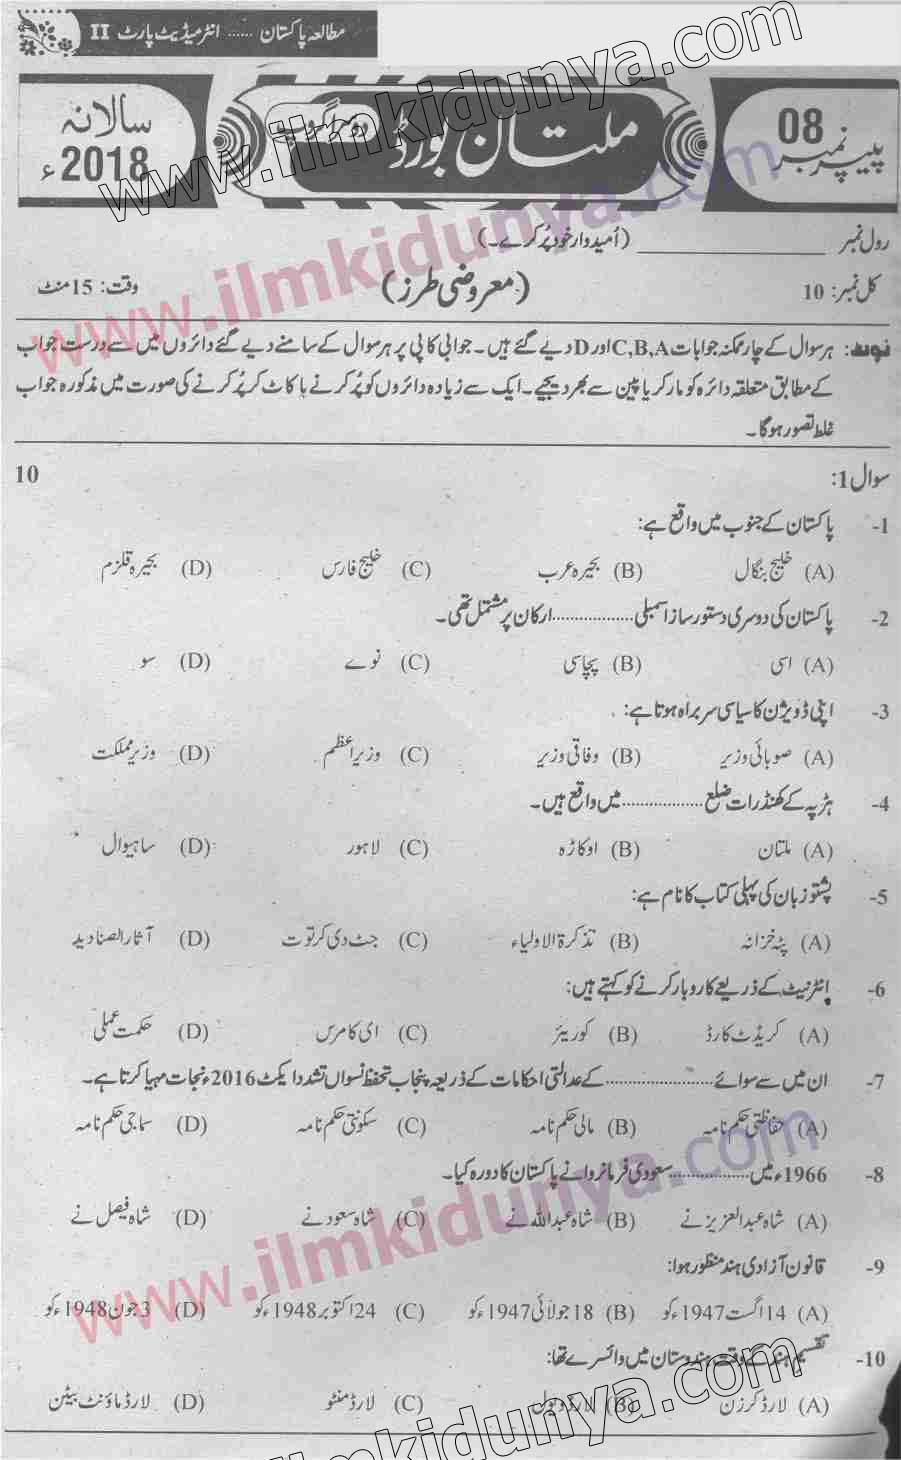 مطالعہ پاکستان ...... انٹرمیڈیٹ پارٹ II
پیپر نمبر 08
ملتان بورڈ
دوسرا گروپ
سالانہ 2018ء
رول نمبر ____________ (اُمیدوار خود پُر کرے۔)
کل نمبر: 10 (معروضی طرز) وقت: 15 منٹ
نوٹ: ہر سوال کے چار ممکنہ جوابات C,B,A اور D دیے گئے ہیں۔ جوابی کاپی پر ہر سوال کے سامنے دیے گئے دائروں میں سے درست جواب
کے مطابق متعلقہ دائرہ کو مارکر یا پین سے بھر دیجیے۔ ایک سے زیادہ دائروں کو پُر کرنے یا کاٹ کر پُر کرنے کی صورت میں مذکورہ جواب
غلط تصور ہوگا۔
سوال 1: 10
1- پاکستان کے جنوب میں واقع ہے:
(A) خلیج بنگال (B) بحیرہ عرب (C) خلیج فارس (D) بحیرہ قلزم
2- پاکستان کی دوسری دستور ساز اسمبلی .................. ارکان پر مشتمل تھی۔
(A) اسی (B) پچاسی (C) نوے (D) سو
3- اپنی ڈویژن کا سیاسی سربراہ ہوتا ہے:
(A) صوبائی وزیر (B) وفاقی وزیر (C) وزیر اعظم (D) وزیر مملکت
4- ہڑپہ کے کھنڈرات ضلع .................. میں واقع ہیں۔
(A) ملتان (B) اوکاڑہ (C) لاہور (D) ساہیوال
5- پشتو زبان کی پہلی کتاب کا نام ہے:
(A) پٹہ خزانہ (B) تذکرۃ الاولیاء (C) جٹ دی کرتوت (D) آثار الصنادید
6- انٹرنیٹ کے ذریعے کاروبار کرنے کو کہتے ہیں:
(A) کریڈٹ کارڈ (B) کوریئر (C) ای کامرس (D) حکمت عملی
7- ان میں سے سوائے .................. کے عدالتی احکامات کے ذریعہ پنجاب تحفظ نسواں تشدد ایکٹ 2016ء نجات مہیا کرتا ہے۔
(A) حفاظتی حکم نامہ (B) مالی حکم نامہ (C) سکونتی حکم نامہ (D) سماجی حکم نامہ
8- 1966ء میں .................. سعودی فرمانروا نے پاکستان کا دورہ کیا۔
(A) شاہ عبدالعزیز نے (B) شاہ عبداللہ نے (C) شاہ سعود نے (D) شاہ فیصل نے
9- قانون آزادی ہند منظور ہوا:
(A) 14 اگست 1947ء کو (B) 18 جولائی 1947ء کو (C) 24 اکتوبر 1948ء کو (D) 3 جون 1948ء کو
10- تقسیم ہند کے وقت ہندوستان میں وائسرے تھا:
(A) لارڈ کرزن (B) لارڈ ویول (C) لارڈ منٹو (D) لارڈ ماؤنٹ بیٹن
www.ilmkidunya.com
www.ilmkidunya.com
www.ilmkidunya.com
www.ilmkidunya.com